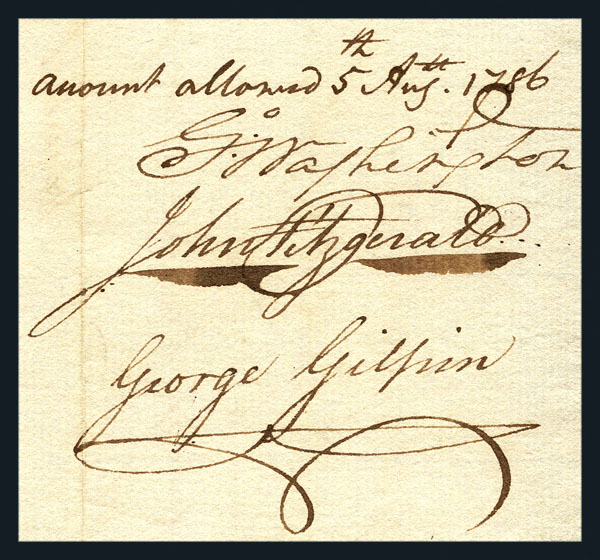 amount allowed 5th Augtt. 1786
Go: Washington
John Fitzgerald
George Gilpin